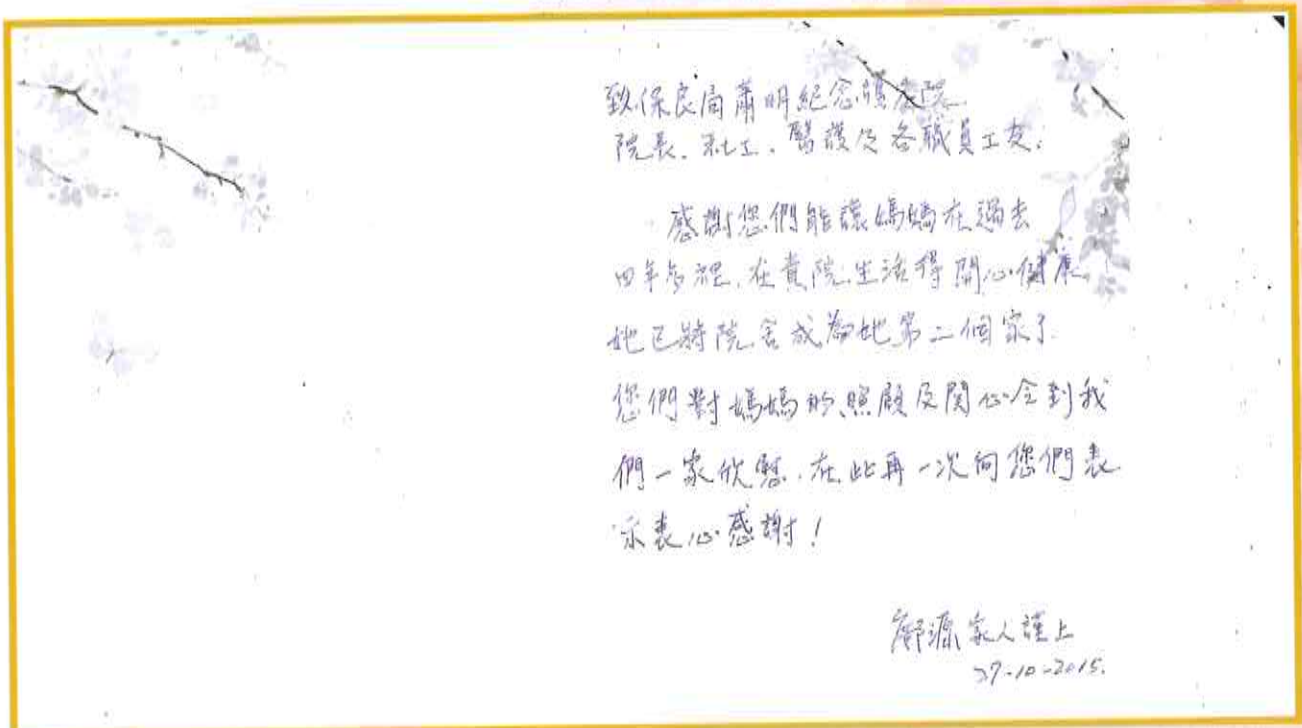 致保良局蕭明紀念護老院
院長、社工、醫護及各職員工友:
感謝您們能讓媽媽在過去
四年多裡,在貴院生活得開心健康
她已將院舍成為她第二個家了.
您們對媽媽的照顧及關心令到我
們一家欣慰,在此再一次向您們表
示衷心感謝!
鄺源家人謹上
27-10-2015.